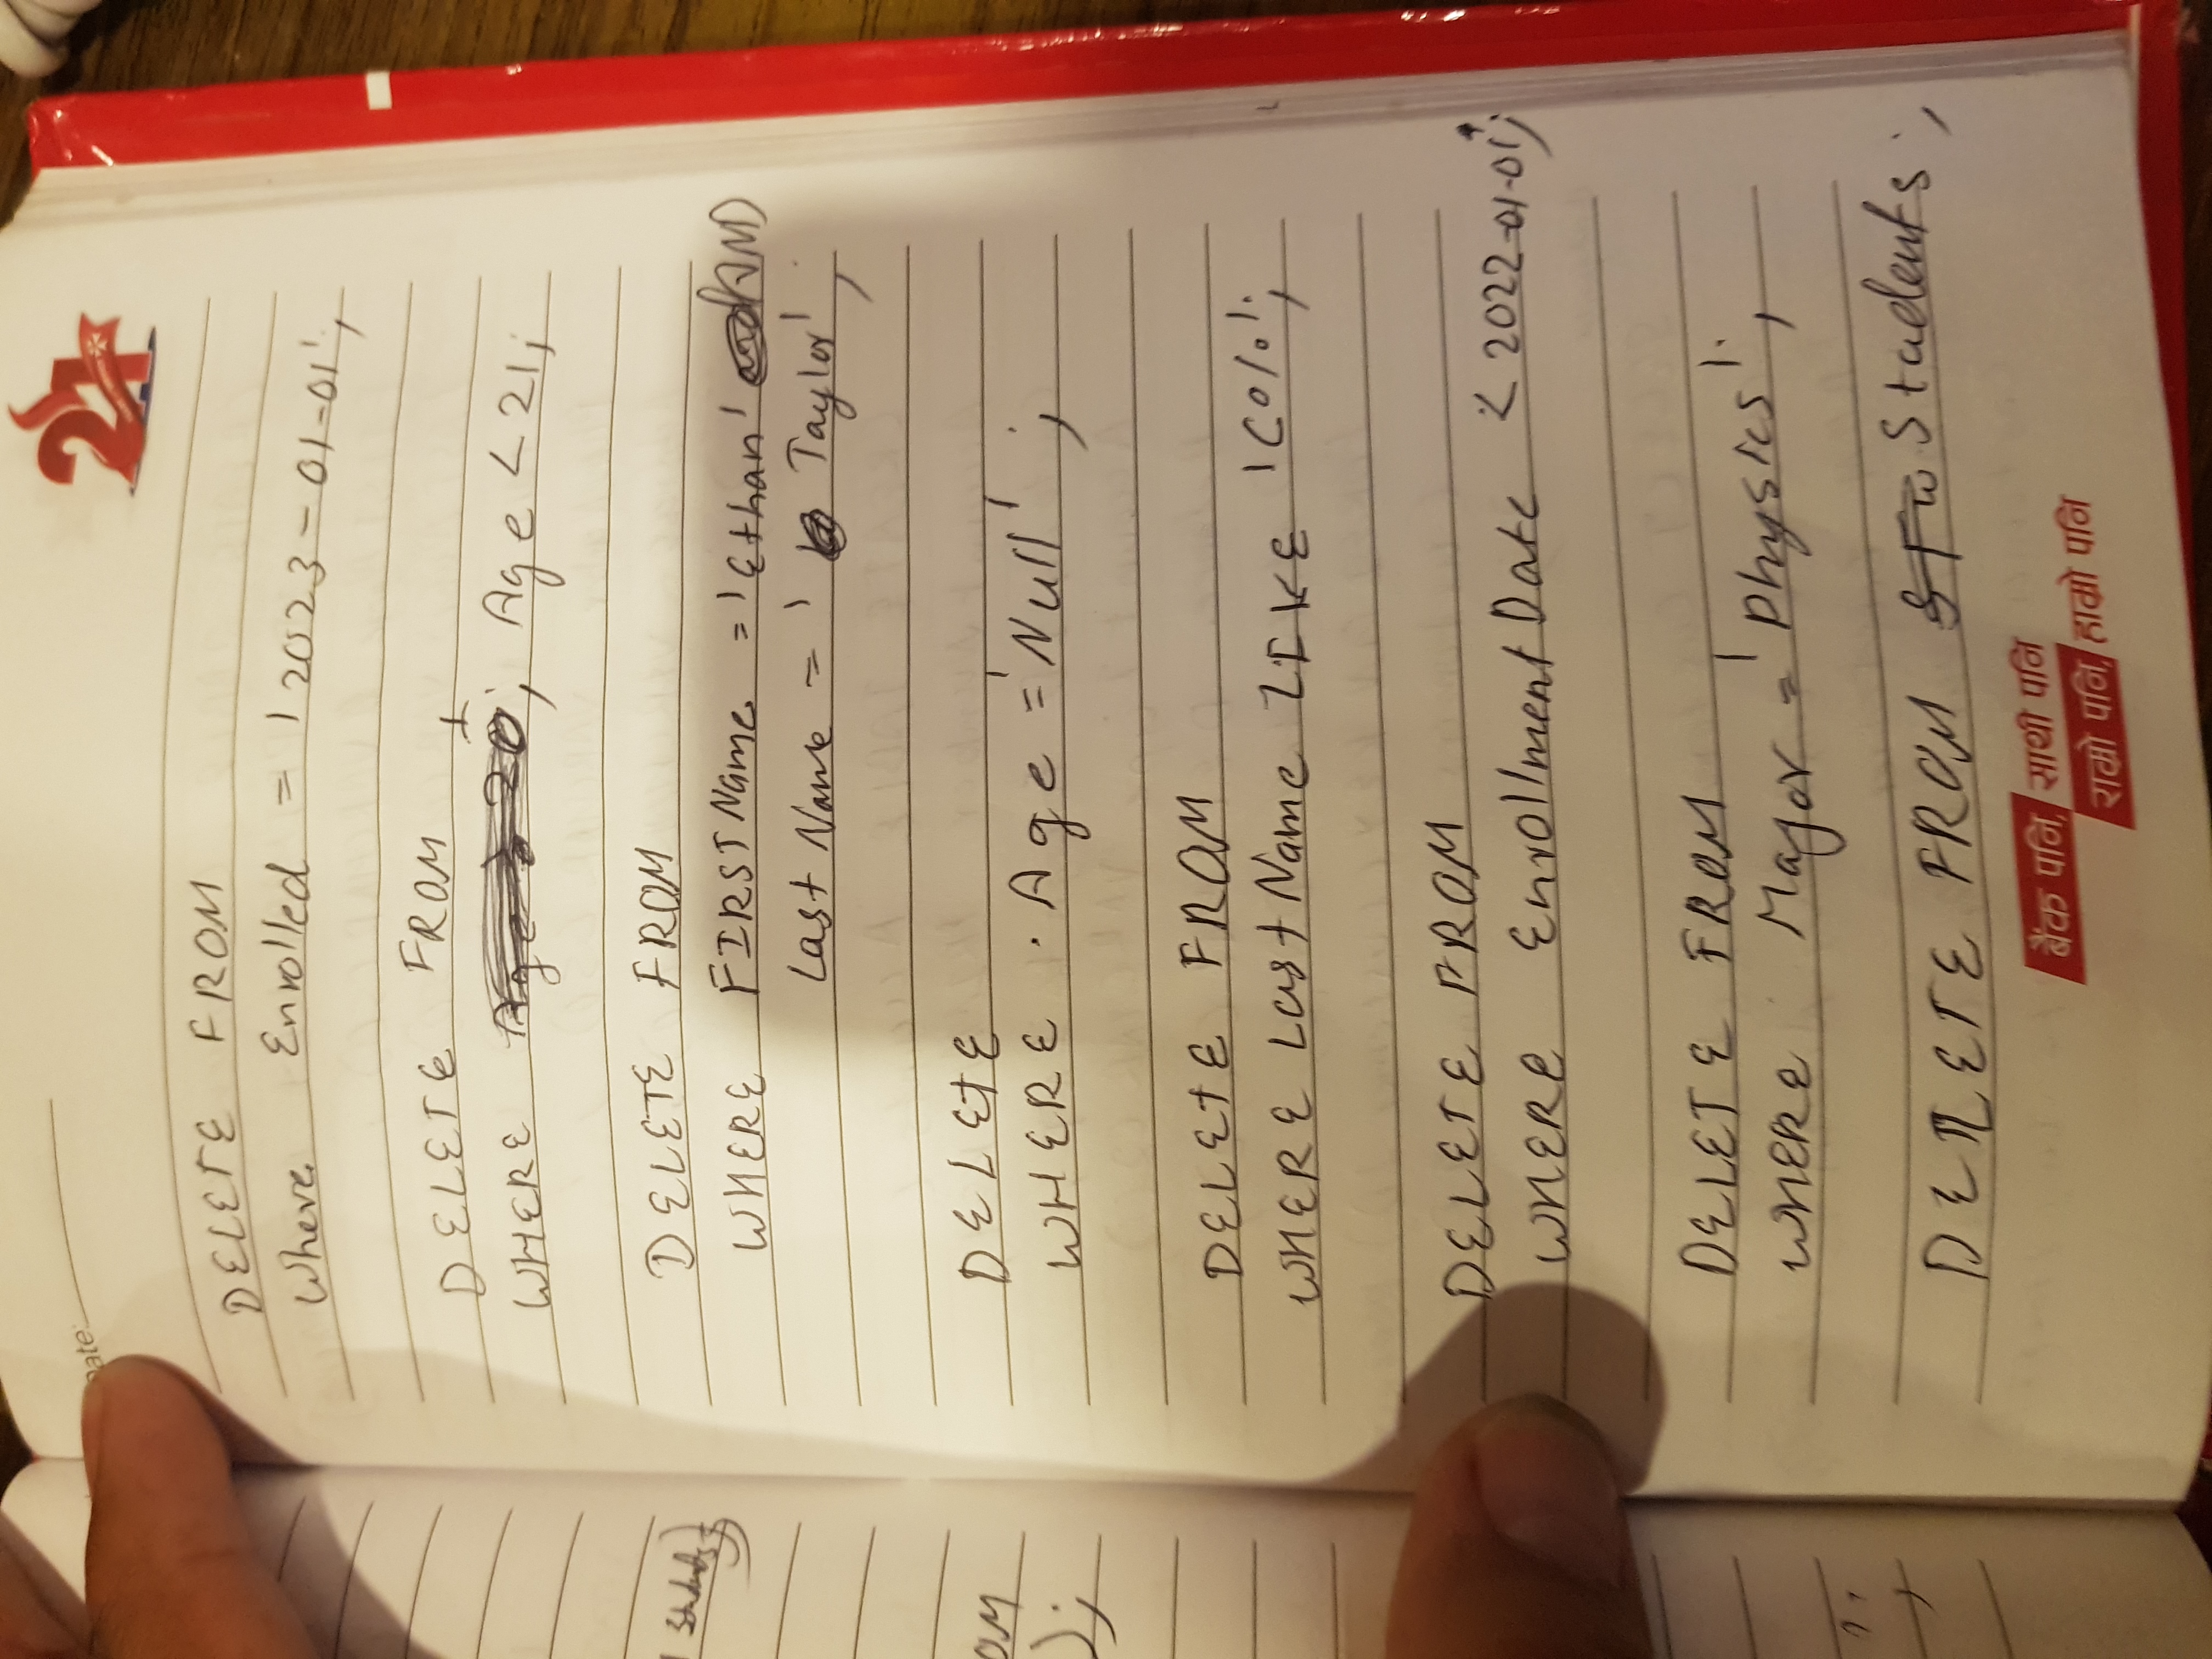 Date:
21
DELETE FROM
Where Enrolled = '2023-01-01';
DELETE FROM
WHERE Age < 21;
DELETE FROM
WHERE FIRSTName = 'Ethan' AND
Last Name = 'Taylor';
DELETE
WHERE . Age = 'Null' ;
DELETE FROM
WHERE Last Name LIKE 'C%';
DELETE FROM
WHERE EnrollmentDate < 2022-01-01';
DELETE FROM
WHERE Major = 'Physics';
DELETE FROM Students;
बैंक पनि, साथी पनि
राम्रो पनि, हाम्रो पनि
Students
OM
);